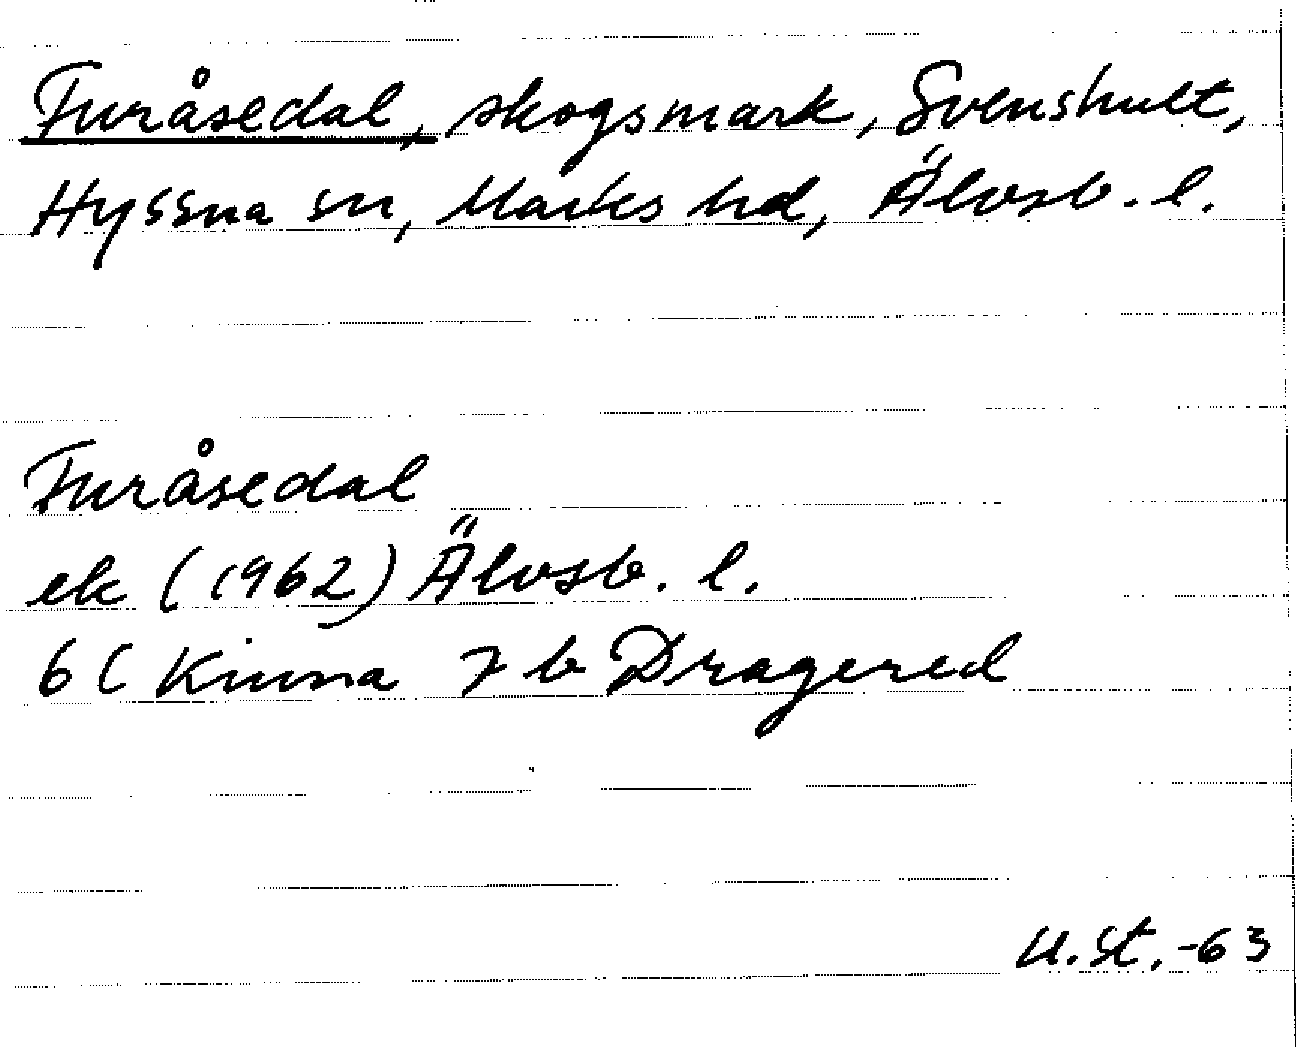 Furåsedal, skogsmark, Svenshult,
Hyssna sn, Marks hd, Älvsb. l.
Furåsedal
ek (1962) Älvsb. l.
6C Kinna 7 b Dragered
U.St. -63